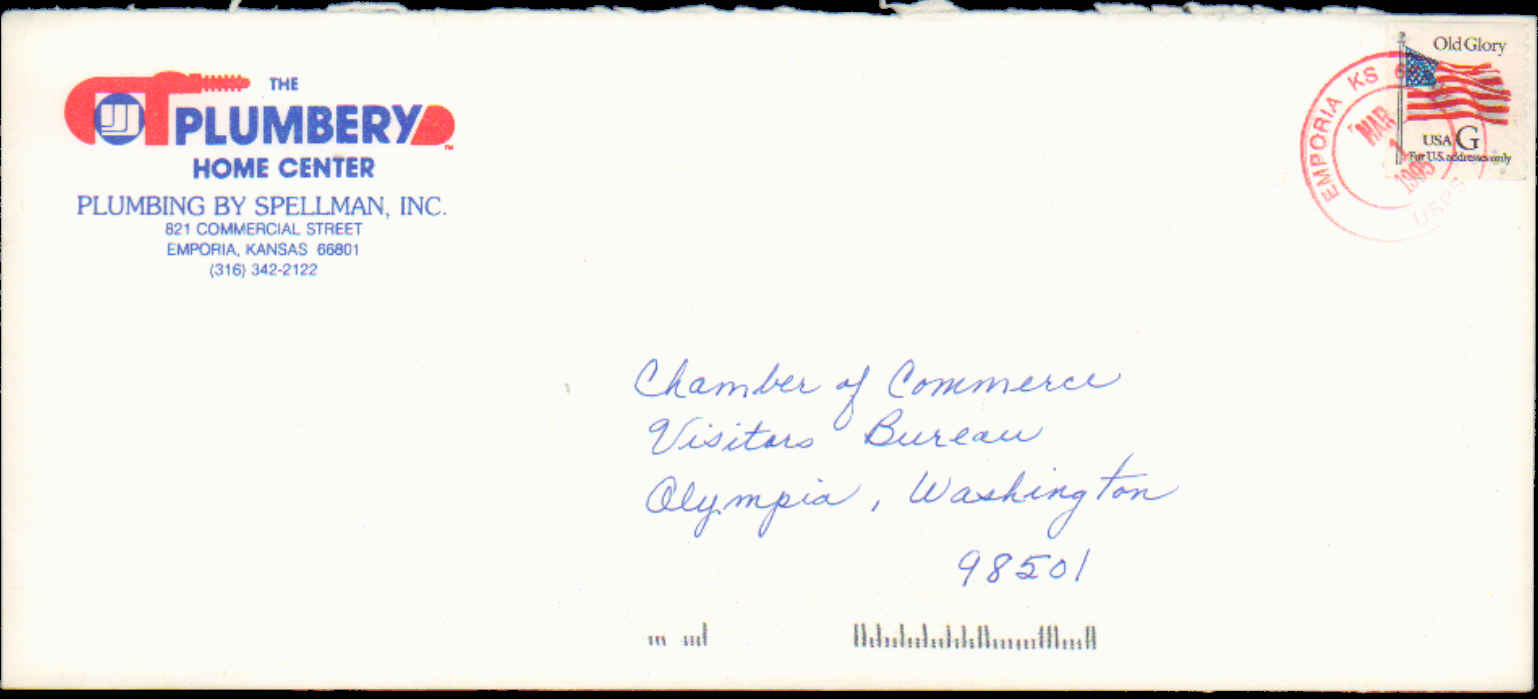 THE
PLUMBERY
HOME CENTER
PLUMBING BY SPELLMAN, INC.
821 COMMERCIAL STREET
EMPORIA, KANSAS 66801
(316) 342-2122
Old Glory
USA G
For U.S. addresses only
EMPORIA KS
MAR
1995
USPS
Chamber of Commerce
Visitors Bureau
Olympia, Washington
98501